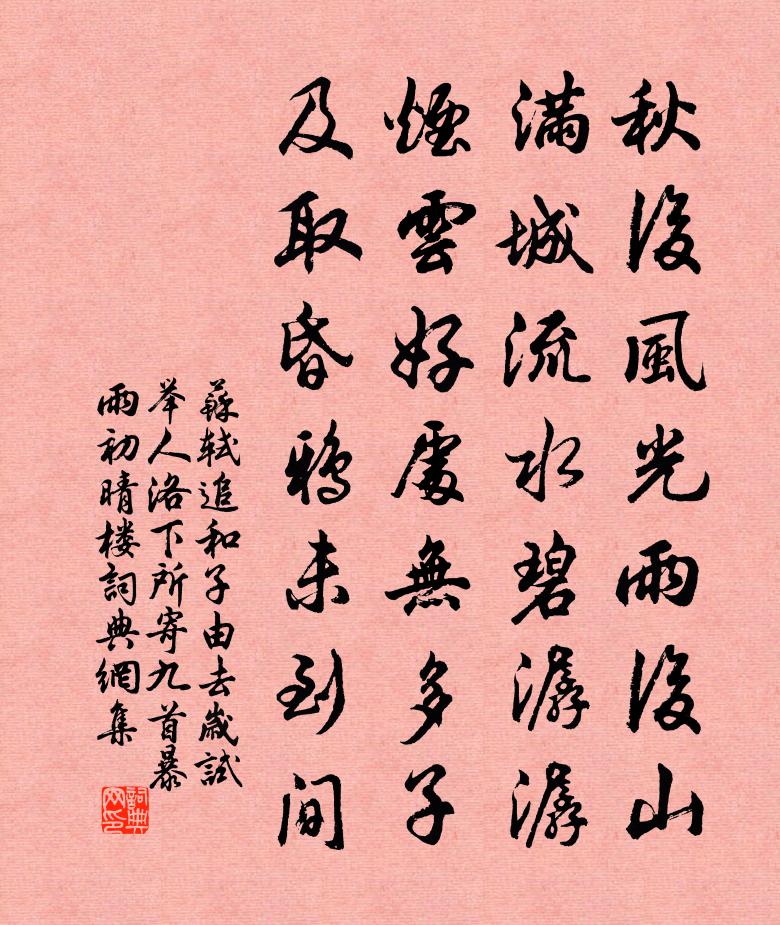 秋後風光雨後山
滿城流水碧潺潺
煙雲好處無多子
及取昏鴉未到間
蘇軾追和子由去歲試
举人洛下所寄九首暴
雨初晴楼詞典網集
詞典网印